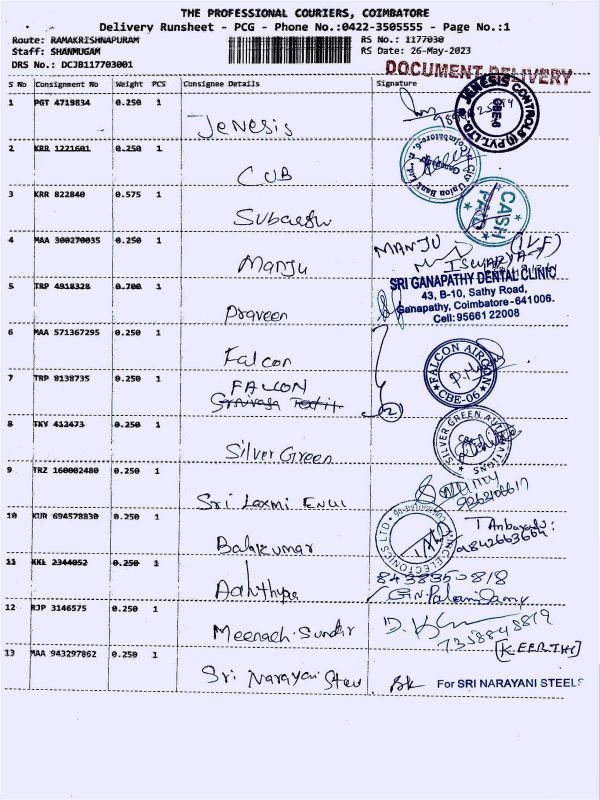 THE PROFESSIONAL COURIERS, COIMBATORE
Delivery Runsheet - PCG - Phone No.:0422-3505555 - Page No.:1
Route: RAMAKRISHNAPURAM RS No.: 1177030
Staff: SHANMUGAM RS Date: 26-May-2023
DRS No.: DCJB117703001
DOCUMENT DELIVERY
S No Consignment No Weight PCS Consignee Details Signature
1 PGT 4719834 0.250 1 Jenesis
JENESIS CONTROLS (I) PVT. LTD. CBE-6
2 KRR 1221601 0.250 1 CUB
City Union Bank Ltd. Coimbatore-6.
3 KRR 822840 0.575 1
CASH PAID
4 MAA 300270035 0.250 1 Manju MANJU
(IVF)
5 TRP 4918328 0.700 1 Praveen
SRI GANAPATHY DENTAL CLINIC
43, B-10, Sathy Road,
Ganapathy, Coimbatore-641006.
Cell: 95661 22008
6 MAA 571367295 0.250 1 Falcon
FALCON AIRCON CBE-06
7 TRP 8138735 0.250 1 FALCON
(2)
8 TKY 412473 0.250 1 Silver Green
SILVER GREEN
9 TRZ 160002480 0.250 1 Sri Laxmi
10 KUR 694578830 0.250 1 Balakumar
9842663664
11 KKL 2344052 0.250 1
8438350818
12 RJP 3146575 0.250 1
7358848819
[KEERTHI]
13 MAA 943297862 0.250 1 Sri Narayani
For SRI NARAYANI STEELS